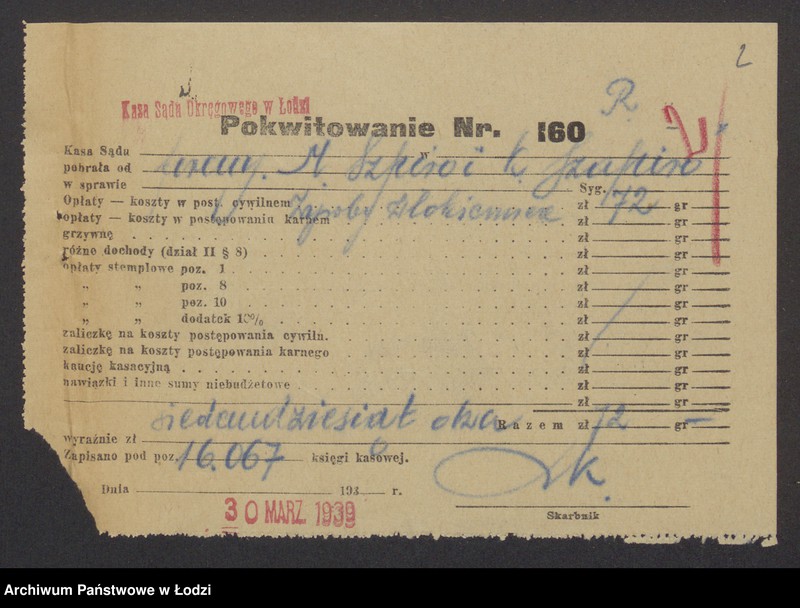 2
Kasa Sądu Okręgowego w Łodzi
R.
Pokwitowanie Nr. 160
Kasa Sądu w
pobrała od M Szpiro i Szapiro
w sprawie Syg.
Opłaty — koszty w post. cywilnem zł 72 gr
opłaty — koszty w postępowaniu karnem zł gr
grzywnę zł gr
różne dochody (dział II § 8) zł gr
opłaty stemplowe poz. 1 zł gr
„ „ poz. 8 zł gr
„ „ poz. 10 zł gr
„ „ dodatek 10% zł gr
zaliczkę na koszty postępowania cywiln. zł gr
zaliczkę na koszty postępowania karnego zł gr
kaucję kasacyjną zł gr
nawiązki i inne sumy niebudżetowe zł gr
zł gr
siedemdziesiąt dwa Razem zł 72 gr —
wyraźnie zł
Zapisano pod poz. 16.067 księgi kasowej.
Dnia 193 r.
30 MARZ. 1939
Skarbnik
Archiwum Państwowe w Łodzi